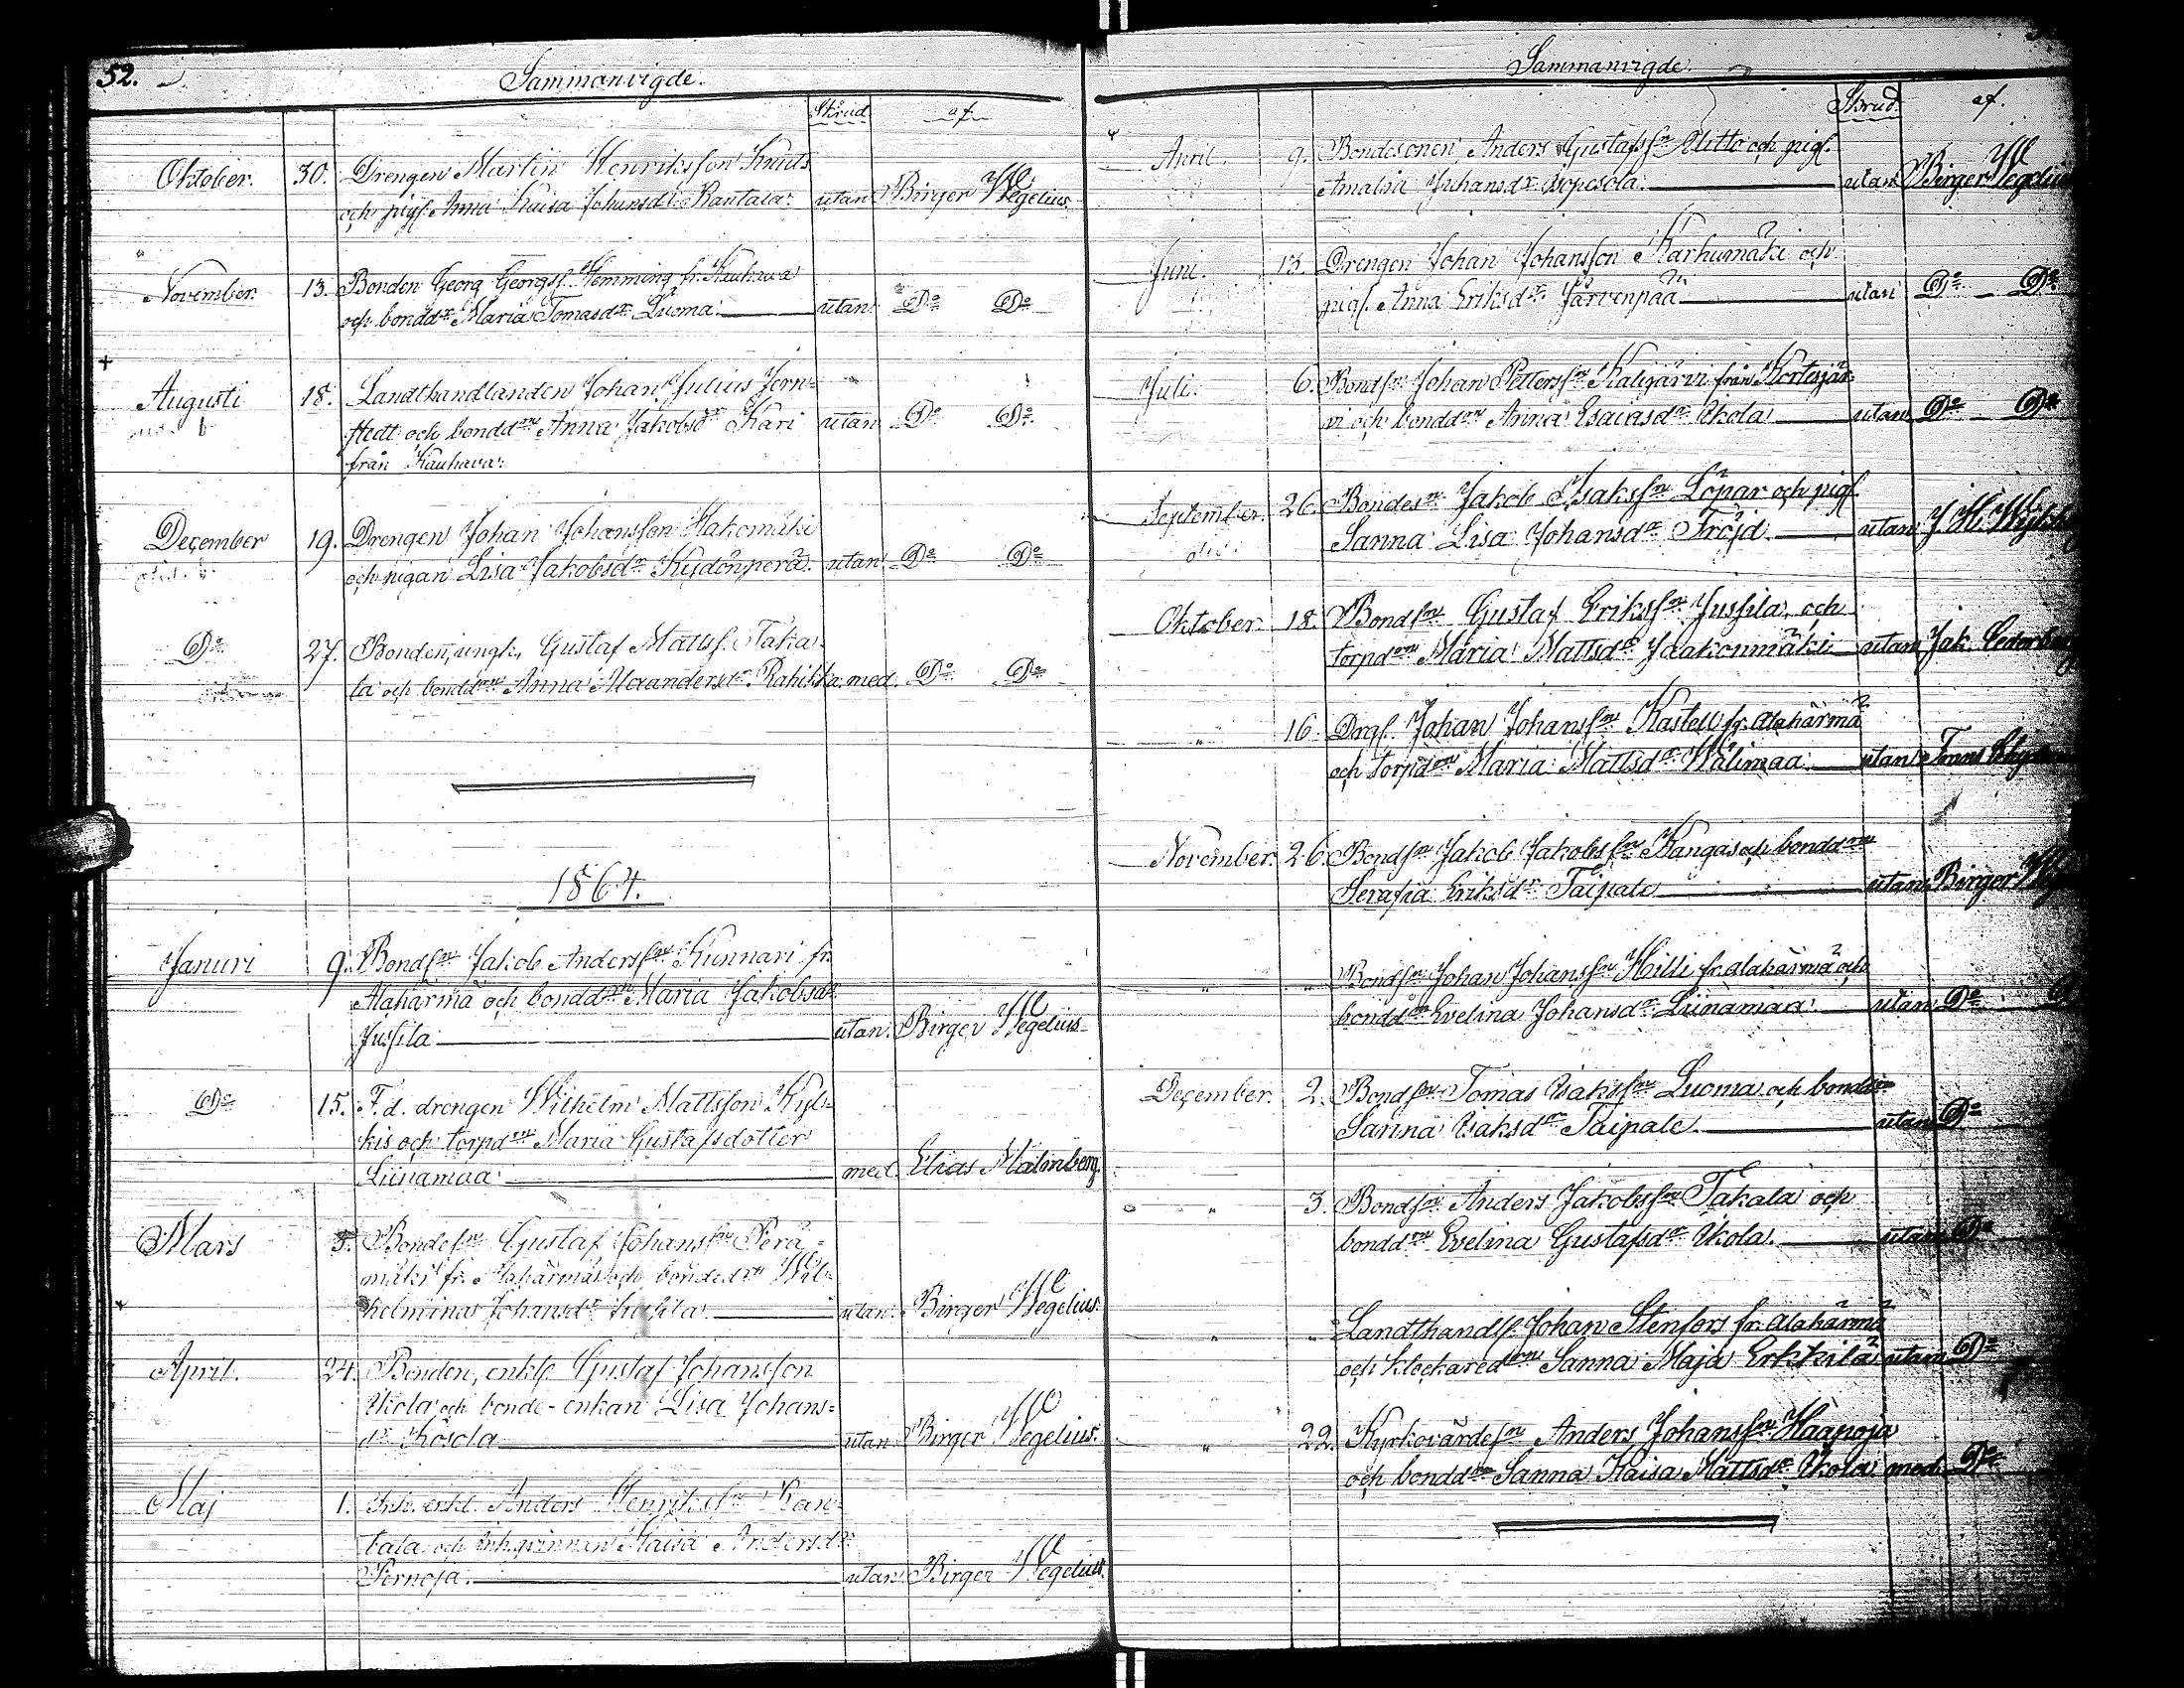 52.
Sammanvigde.
Skrud af
Oktober. 30. Drengen Martin Henriksson Knuts
och pigs. Anna Kaisa Johansdr Rantala: utan. Birger Wegelius.
November. 13. Bonden Georg Georgs. Hemming fr. Kauhava
och bonddr Maria Tomasdr Luoma: utan: Do Do
Augusti 18. Landthandlanden Johan Julius Jern-
stedt och bonddrn Anna Jakobsdr Kari utan Do Do
från Kauhava:
December 19. Drengen Johan Johansson Hakomäki
och pigan Lisa Jakobsdr Kydönperä. utan Do Do
Do 27. Bonden, ungk. Gustaf Matts. Taka-
la och bonddrn Anna Maandersdr Rahikka: med. Do Do
1864.
Januri 9. Bondsn Jakob Anderssn Kunnari fr.
Alahärmä och bonddrn Maria Jakobsdr
Jussila utan: Birger Wegelius
Do 15. F.d. drengen Wilhelm Mattsson Kyl-
kis och torpdrn Maria Gustafsdotter
Liinamaa: med. Elias Malmberg.
Mars 5. Bondesn Gustaf Johanssn Perä-
mäki fr. Alahärmä och bondedrn Wil-
helmina Johansdr Jussila utan: Birger Wegelius.
April. 24. Bonden, enkl. Gustaf Johansson
Ukola och bonde-enkan Lisa Johans-
dr Kösola utan Birger Wegelius.
Maj 1. Inh. enkl. Anders Henrikssn Ran-
tala och inhqvinnan Kaisa Andersdr
Pernoja. utan Birger Wegelius.
Sammanvigde.
Skrud. af.
April. 9. Bondesonen Anders Gustafsn Alitto och pigs.
Amalia Juhansdr Isopesola. utan Birger Wegelius
Juni. 13. Drengen Johan Johansson Karhumäki och
pigs. Anna Eriksdr Järvenpää utan Do Do
Juli. 6. Bondsn Johan Petterssn Kalijärvi från Kortesjär-
vi och bonddrn Anna Esaiasdr Ukola utan Do Do
September. 26. Bondesn Jakob Isakssn Löpar och pigs.
Sanna Lisa Johansdr Fröjd utan
Oktober. 18. Bondsn Gustaf Erikssn Jussila, och
torpdrn Maria Mattsdr Jaakonmäki utan Jak.
" 16. Drgs. Johan Johanssn Kastell fr. Alahärmä
och torpdrn Maria Mattsdr Wälimaa utan Frans
November. 26. Bondsn Jakob Jakobssn Kangas och bonddrn
Serafia Eriksdr Taipale utan Birger
" " Bondsn Johan Johanssn Hilli fr. Alahärmä och
bonddrn Evelina Johansdr Liinamaa: utan Do
December. 2. Bondsn Tomas Isakssn Luoma och bonddrn
Sanna Isaksdr Taipale. utan Do
" 3. Bondsn Anders Jakobssn Takala och
bonddrn Evelina Gustafsdr Ukola. utan Do
" " Landthandl. Johan Stenfors fr. Alahärmä
och klockaredrn Sanna Maja Erkkilä utan Do
" 22. Kyrkovärdesn Anders Johanssn Haapoja
och bonddrn Sanna Kaisa Mattsdr Ukola med Do